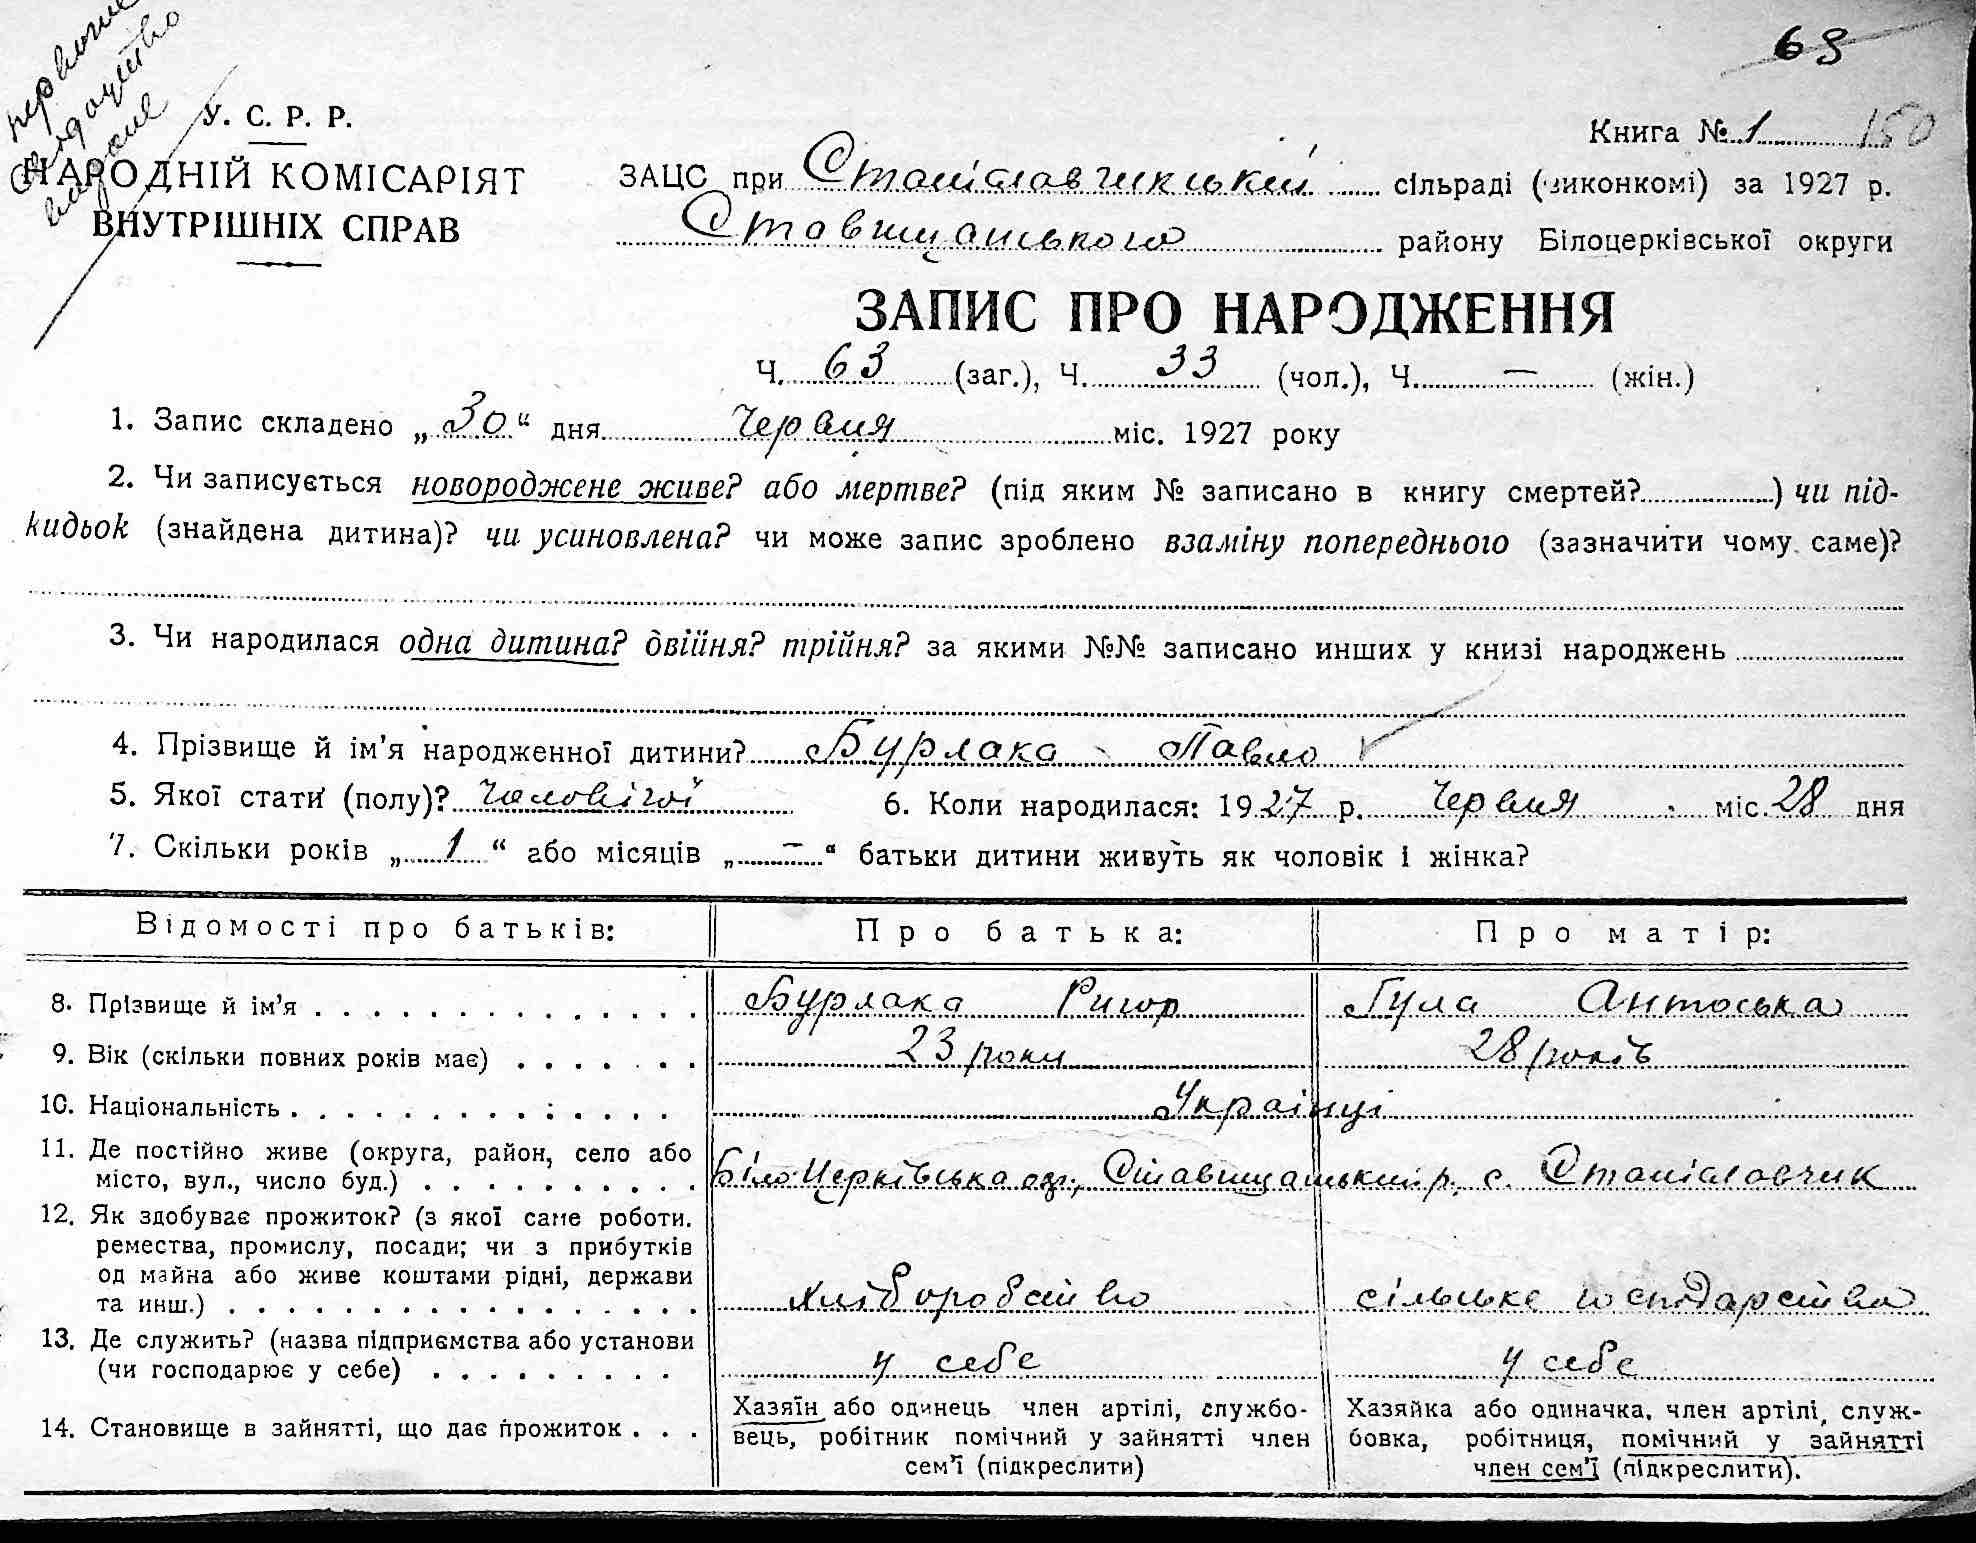 первичне
свідоцтво
видане
69
У. С. Р. Р.
НАРОДНІЙ КОМІСАРІЯТ
ВНУТРІШНІХ СПРАВ
Книга № 1 150
ЗАЦС при Станіславчикській сільраді (виконкомі) за 1927 р.
Ставищанського району Білоцерківської округи
ЗАПИС ПРО НАРОДЖЕННЯ
Ч. 63 (заг.), Ч. 33 (чол.), Ч. — (жін.)
1. Запис складено „30“ дня Червня міс. 1927 року
2. Чи записується новороджене живе? або мертве? (під яким № записано в книгу смертей?) чи під-
кидьок (знайдена дитина)? чи усиновлена? чи може запис зроблено взаміну попереднього (зазначити чому саме)?
3. Чи народилася одна дитина? двійня? трійня? за якими №№ записано инших у книзі народжень
4. Прізвище й ім’я народженної дитини? Бурлака Павло
5. Якої стати (полу)? Чоловічої 6. Коли народилася: 1927 р. Червня міс. 28 дня
7. Скільки років „1“ або місяців „—“ батьки дитини живуть як чоловік і жінка?
Відомості про батьків: Про батька: Про матір:
8. Прізвище й ім’я Бурлака Ригор Гула Антоська
9. Вік (скільки повних років має) 23 роки 28 років
10. Національність Українці
11. Де постійно живе (округа, район, село або
місто, вул., число буд.) Біло-Церківська окр., Ставищанський р. с. Станіславчик
12. Як здобуває прожиток? (з якої саме роботи,
ремества, промислу, посади; чи з прибутків
од майна або живе коштами рідні, держави
та инш.) хліборобство сільське господарство
13. Де служить? (назва підприємства або установи
(чи господарює у себе) у себе у себе
14. Становище в зайнятті, що дає прожиток
Хазяїн або одинець член артілі, службо-
вець, робітник помічний у зайнятті член
сем’ї (підкреслити)
Хазяйка або одиначка, член артілі, служ-
бовка, робітниця, помічний у зайнятті
член сем’ї (підкреслити).